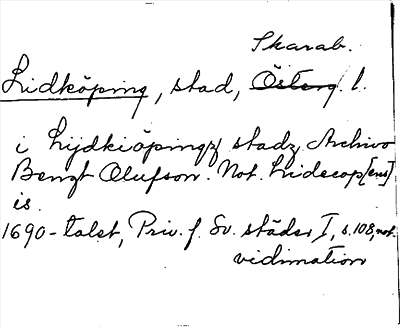 Skarab.
Lidköping, stad, Österg. l.
i Lijdkiöpingz stadz Archivo
Bengt Olufson. Not. Lidecop[ens]
is.
1690-talet, Priv. f. Sv. städer I, s. 108, not.
vidimation